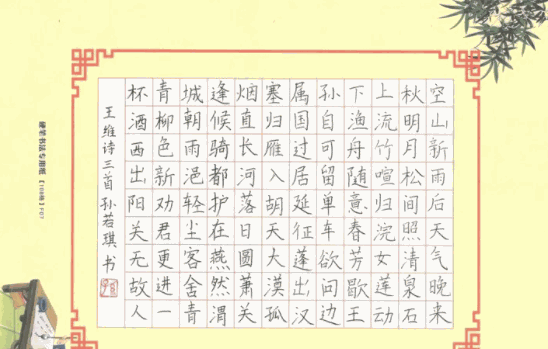 空山新雨后天气晚来
秋明月松间照清泉石
上流竹喧归浣女莲动
下渔舟随意春芳歇王
孙自可留单车欲问边
属国过居延征蓬出汉
塞归雁入胡天大漠孤
烟直长河落日圆萧关
逢候骑都护在燕然渭
城朝雨浥轻尘客舍青
青柳色新劝君更进一
杯酒西出阳关无故人
王维诗三首 孙若琪 书
硬笔书法专用纸【108格】F07